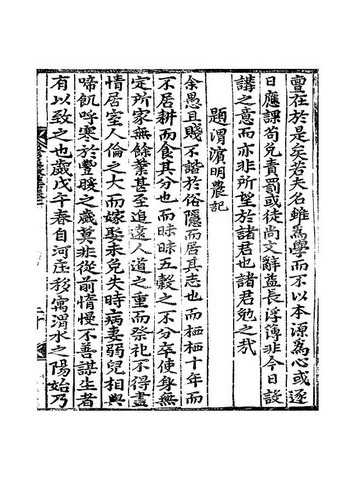 亶在於是矣若夫名雖為學而不以本源為心或逐
日應課苟免責罰或徒尚文辭益長浮薄非今日設
講之意而亦非所望於諸君也諸君勉之哉
題渭濱明農記
余愚且賤不諧於俗隱而居其志也而栖栖十年而
不居耕而食其分也而昧昧五穀之不分卒使身無
定所家無餘業甚至追遠人道之重而祭祀不得盡
情居室人倫之大而嫁娶未免失時病妻弱兒相與
啼飢呼寒於豐賤之歲莫非從前惰慢不善謀生者
有以致之也歲戊午春自河庄移寓渭水之陽始乃